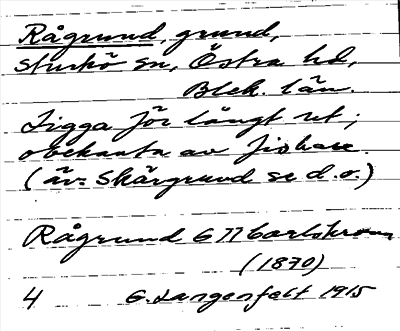 Rågrund, grund,
Sturkö sn, Östra hd,
Blek. län.
Ligga för långt ut;
obekanta av fiskare.
(äv. Skärgrund se d.o.)
Rågrund G Karlskrona
(1870)
4 G. Langenfelt 1915